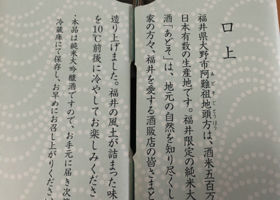 口上
福井県大野市阿難祖地頭方は、酒米五百万
日本有数の生産地です。福井限定の純米大
酒「あどそ」は、地元の自然を知り尽くし
家の方々、福井を愛する酒販店の皆さまと
造り上げました。福井の風土が詰まった味
を10℃前後に冷やしてお楽しみくださ
・本品は純米大吟醸酒ですので、お手元に届き次第
冷蔵庫にて保存し、お早めにお召し上がりくださ